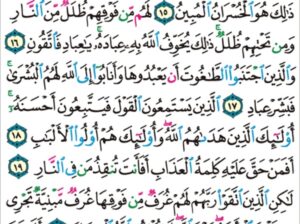 ذَٰلِكَ هُوَ ٱلْخُسْرَانُ ٱلْمُبِينُ ١٥ لَهُم مِّن فَوْقِهِمْ ظُلَلٌ مِّنَ ٱلنَّارِ
وَمِن تَحْتِهِمْ ظُلَلٌ ذَٰلِكَ يُخَوِّفُ ٱللَّهُ بِهِۦ عِبَادَهُۥ يَٰعِبَادِ فَٱتَّقُونِ ١٦
وَٱلَّذِينَ ٱجْتَنَبُوا۟ ٱلطَّٰغُوتَ أَن يَعْبُدُوهَا وَأَنَابُوٓا۟ إِلَى ٱللَّهِ لَهُمُ ٱلْبُشْرَىٰ
فَبَشِّرْ عِبَادِ ١٧ ٱلَّذِينَ يَسْتَمِعُونَ ٱلْقَوْلَ فَيَتَّبِعُونَ أَحْسَنَهُۥٓ
أُو۟لَٰٓئِكَ ٱلَّذِينَ هَدَىٰهُمُ ٱللَّهُ وَأُو۟لَٰٓئِكَ هُمْ أُو۟لُوا۟ ٱلْأَلْبَٰبِ ١٨
أَفَمَنْ حَقَّ عَلَيْهِ كَلِمَةُ ٱلْعَذَابِ أَفَأَنتَ تُنقِذُ مَن فِى ٱلنَّارِ ١٩
لَٰكِنِ ٱلَّذِينَ ٱتَّقَوْا۟ رَبَّهُمْ لَهُمْ غُرَفٌ مِّن فَوْقِهَا غُرَفٌ مَّبْنِيَّةٌ تَجْرِى